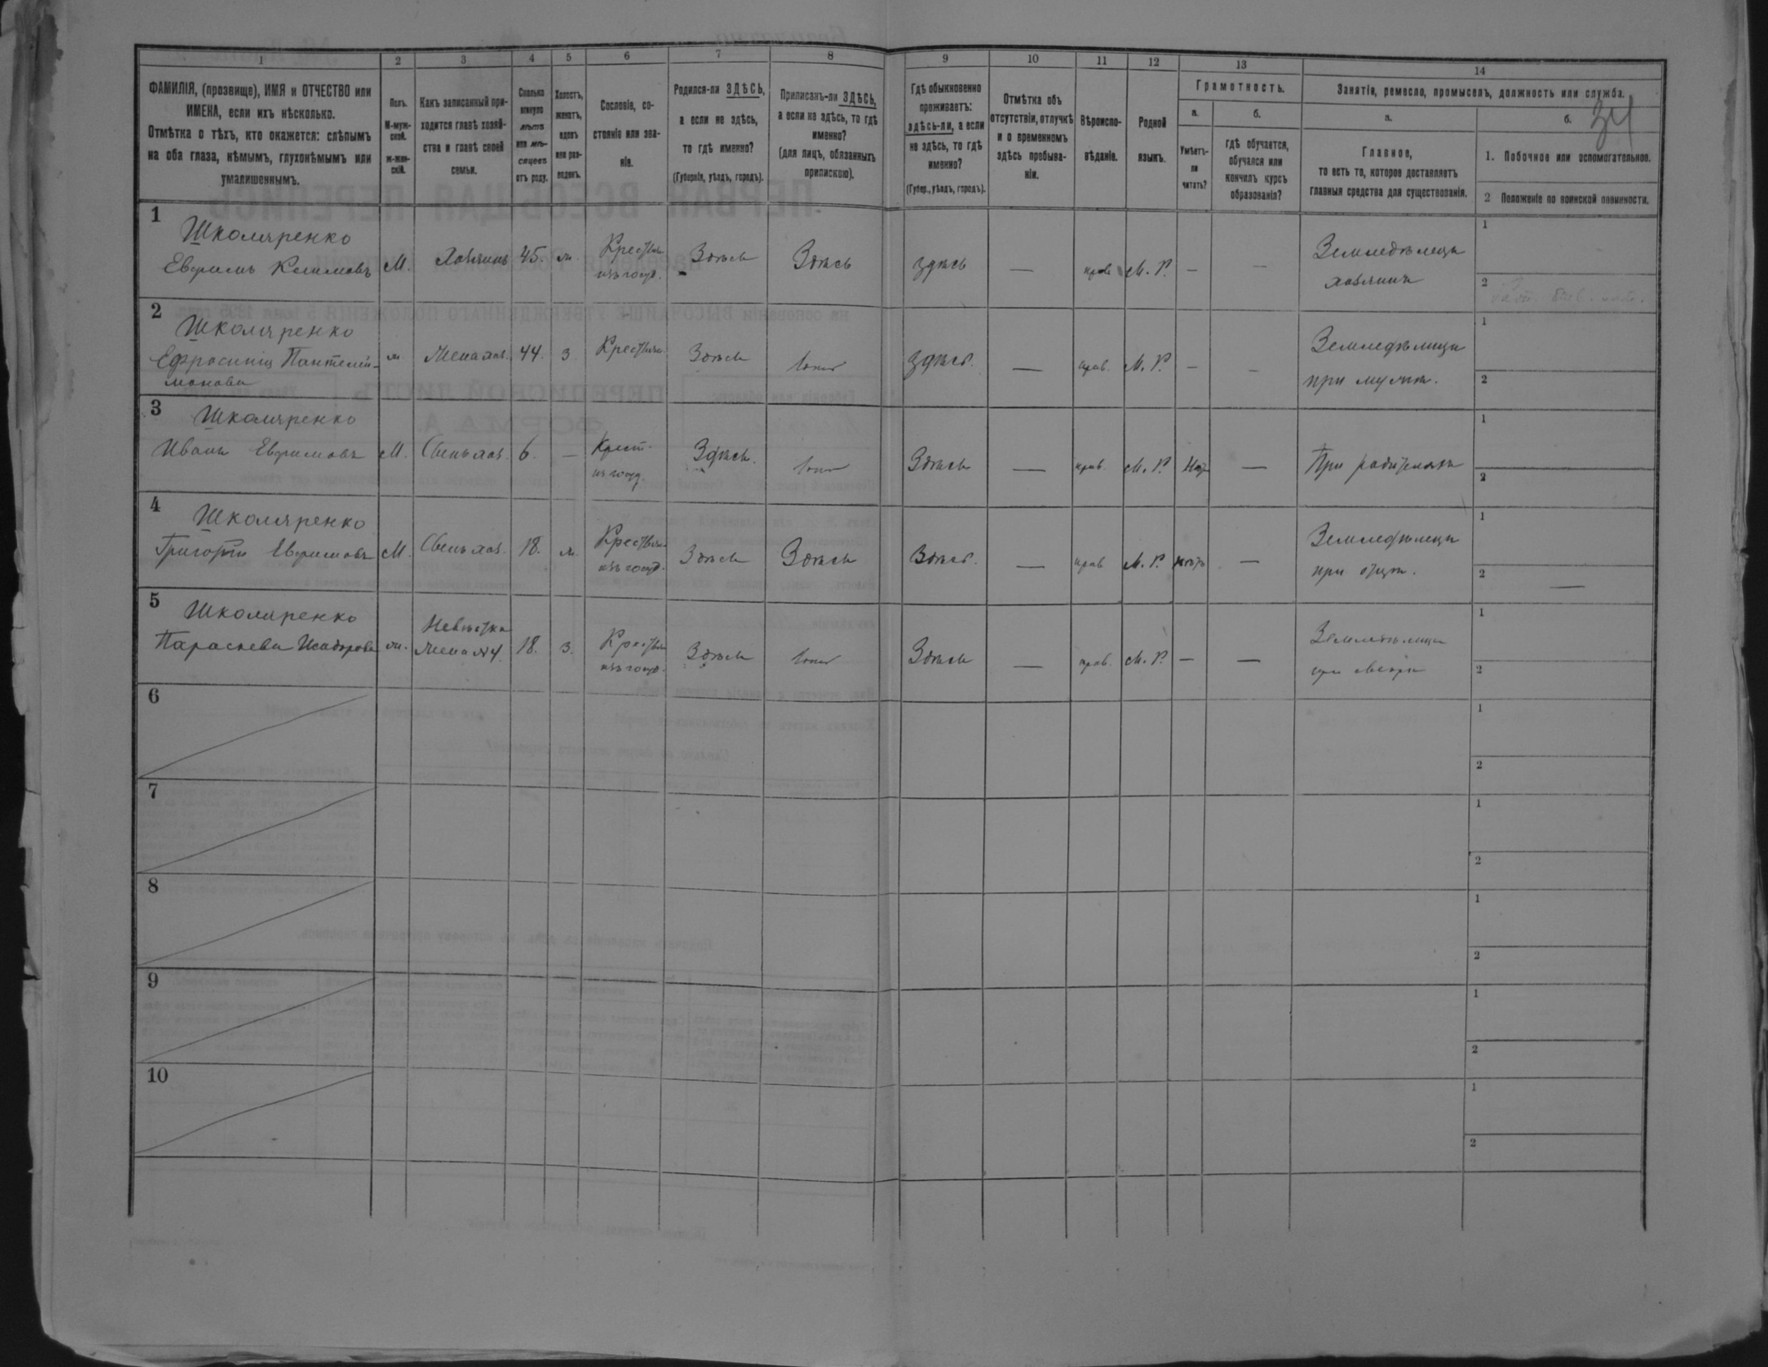 34
1
2
3
4
5
6
7
8
9
10
11
12
13
14
ФАМИЛІЯ, (прозвище), ИМЯ и ОТЧЕСТВО или
ИМЕНА, если ихъ нѣсколько.
Отмѣтка о тѣхъ, кто окажется: слѣпымъ
на оба глаза, нѣмымъ, глухонѣмымъ или
умалишеннымъ.
Полъ.
М-муж-
ской.
ж-жен-
скій.
Какъ записанный при-
ходится главѣ хозяй-
ства и главѣ своей
семьи.
Сколько
минуло
лѣтъ
или мѣ-
сяцевъ
отъ роду.
Холостъ,
женатъ,
вдовъ
или раз-
веденъ.
Сословіе, со-
стояніе или зва-
ніе.
Родился-ли ЗДѢСЬ,
а если не здѣсь,
то гдѣ именно?
(Губернія, уѣздъ, городъ).
Приписанъ-ли ЗДѢСЬ,
а если не здѣсь, то гдѣ
именно?
(для лицъ, обязанныхъ
припискою).
Гдѣ обыкновенно
проживаетъ:
здѣсь-ли, а если
не здѣсь, то гдѣ
именно?
(Губер., уѣздъ, городъ).
Отмѣтка объ
отсутствіи, отлучкѣ
и о временномъ
здѣсь пребыва-
ніи.
Вѣроиспо-
вѣданіе.
Родной
языкъ.
Грамотность.
а.
Умѣетъ-
ли
читать?
б.
гдѣ обучается,
обучался или
кончилъ курсъ
образованія?
Занятіе, ремесло, промыселъ, должность или служба.
а.
Главное,
то есть то, которое доставляетъ
главныя средства для существованія.
б.
1. Побочное или вспомогательное.
2 Положеніе по воинской повинности.
1
Школяренко
Евфимъ Климовъ
М.
Хозяинъ
45.
ж
Крестьян
изъ госуд.
Здѣсь
Здѣсь
здѣсь
—
прав
М. Р.
—
—
Земледѣлецъ
хозяинъ
1
2
2
Школяренко
Ефросинія Пантелей-
монова
ж
Жена хоз.
44.
з
Крестьян
Здѣсь
здѣсь.
—
прав.
М. Р.
—
—
Земледѣлица
при мужѣ.
1
2
3
Школяренко
Иванъ Евфимовъ
М.
Сынъ хоз.
6.
—
Крест.
изъ госуд
Здѣсь.
Здѣсь
—
прав.
М. Р.
Нѣт
—
При родителяхъ
1
2
4
Школяренко
Григорій Евфимовъ
М.
Сынъ хоз.
18.
ж
Крестьян
изъ госуд.
Здѣсь
Здѣсь
Здѣсь.
—
прав
М. Р.
—
Земледѣлецъ
при отцѣ.
1
2
—
5
Школяренко
Параскева Исидорова
ж.
Невѣстка
жена №4.
18.
з.
Крестьян
изъ госуд.
Здѣсь
Здѣсь
—
прав.
М. Р.
—
—
Земледѣлица
при
1
2
6
1
2
7
1
2
8
1
2
9
1
2
10
1
2